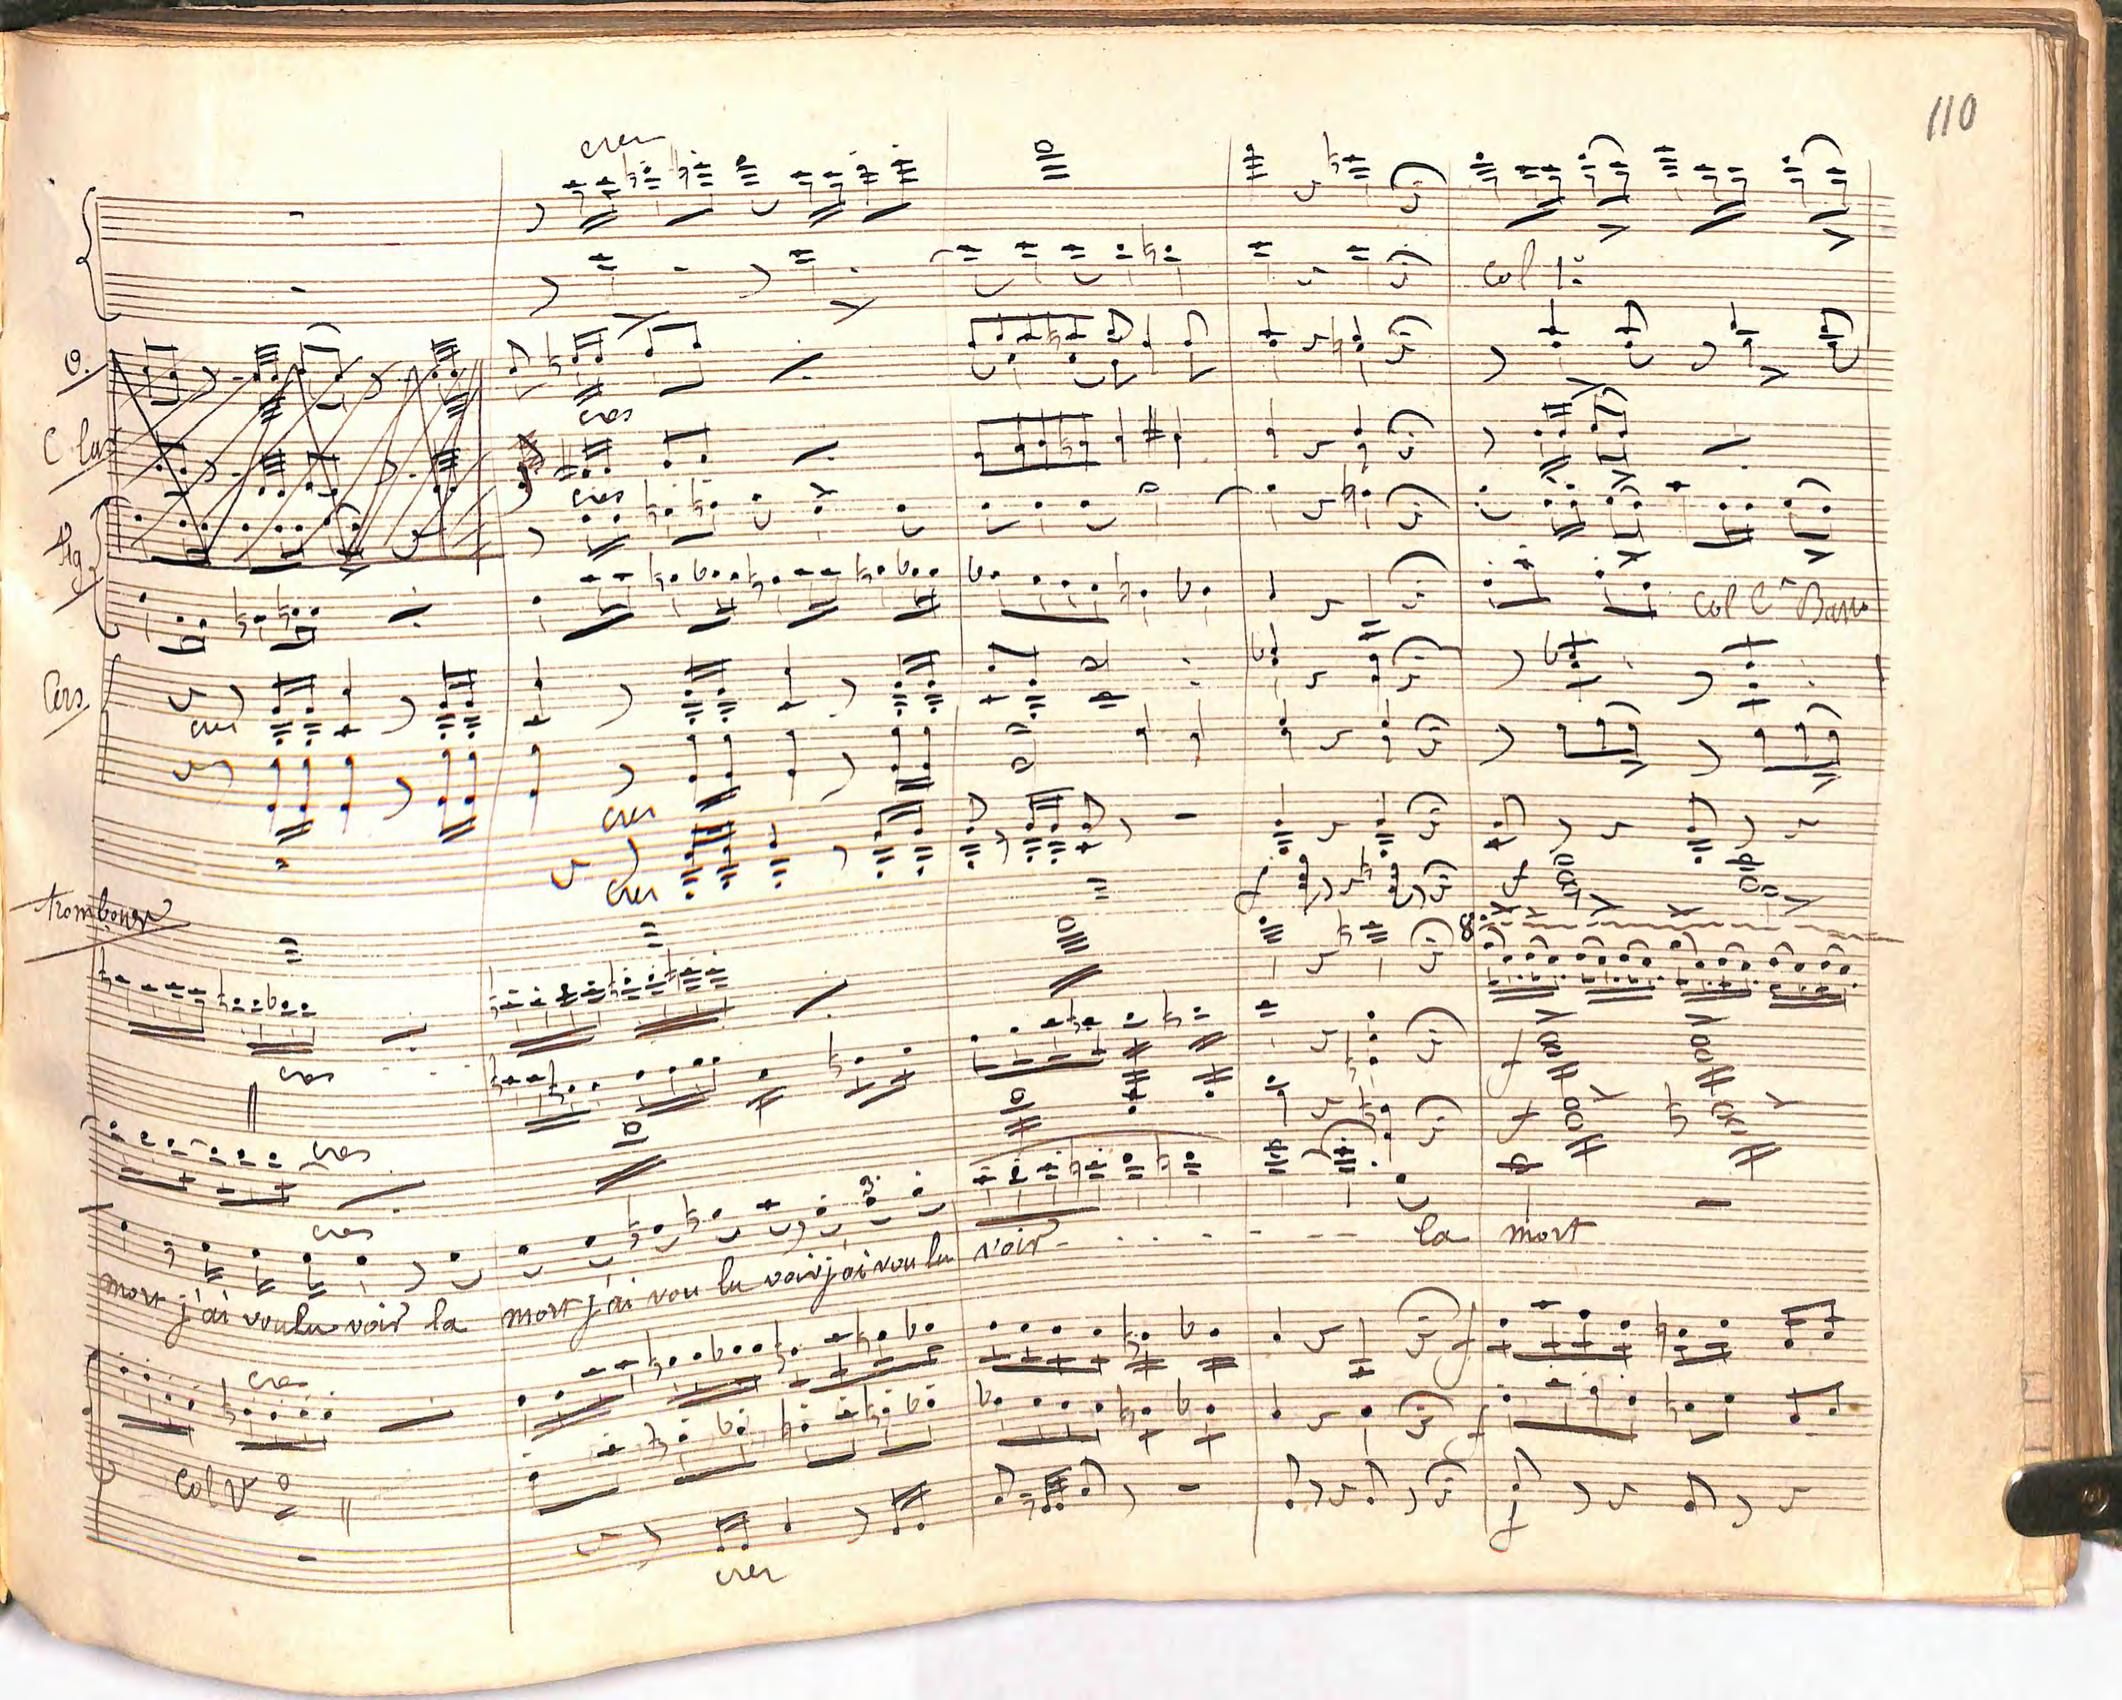 110
cres
col 1º
O.
cres
C. la
cres
fag
col C. Basso
Cors
cres
cres
cres
trombones
f
f
8.
cres
f
cres
f
cres
la mort
mort j'ai voulu voir la mort j'ai vou lu voir j'ai vou lu voir
cres
f
f
Col V
f
cres